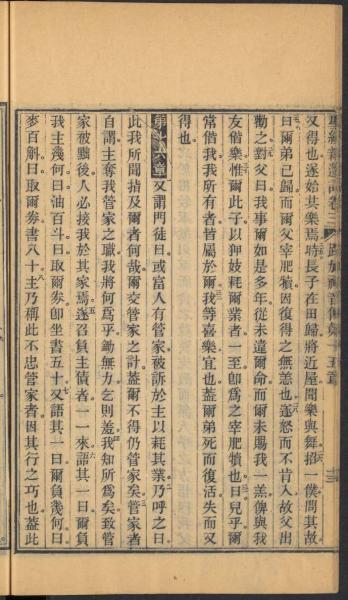 卷三 第十五章
又得也遂始其樂焉時長子在田歸將近屋聞樂與舞招一僕問其故
曰爾弟已歸而爾父宰肥犢因復得之無恙也遂怒而不肯入故父出
勸之對父曰我事爾如是多年從未違爾命而爾未賜我一羔俾與我
友偕樂惟爾此子以狎妓耗爾業者一至卽爲之宰肥犢也曰兒乎爾
常偕我我所有者皆屬於爾我等喜樂宜也蓋爾弟死而復活失而又
得也
第十六章 又謂門徒曰或富人有管家被訴於主以耗其業乃呼之曰
此我所聞指及爾者何哉爾交管家之計蓋爾不得仍管家矣管家者
自謂主奪我管家之職我將何爲乎鋤無力乞則羞我知所爲矣致管
家被黜後人必接我於其家焉遂召負主債者一一來語其一曰爾負
我主幾何曰油百斗曰取爾券卽坐書五十又語其一曰爾負幾何曰
麥百斛曰取爾券書八十主乃稱此不忠管家者因其行之巧也蓋此